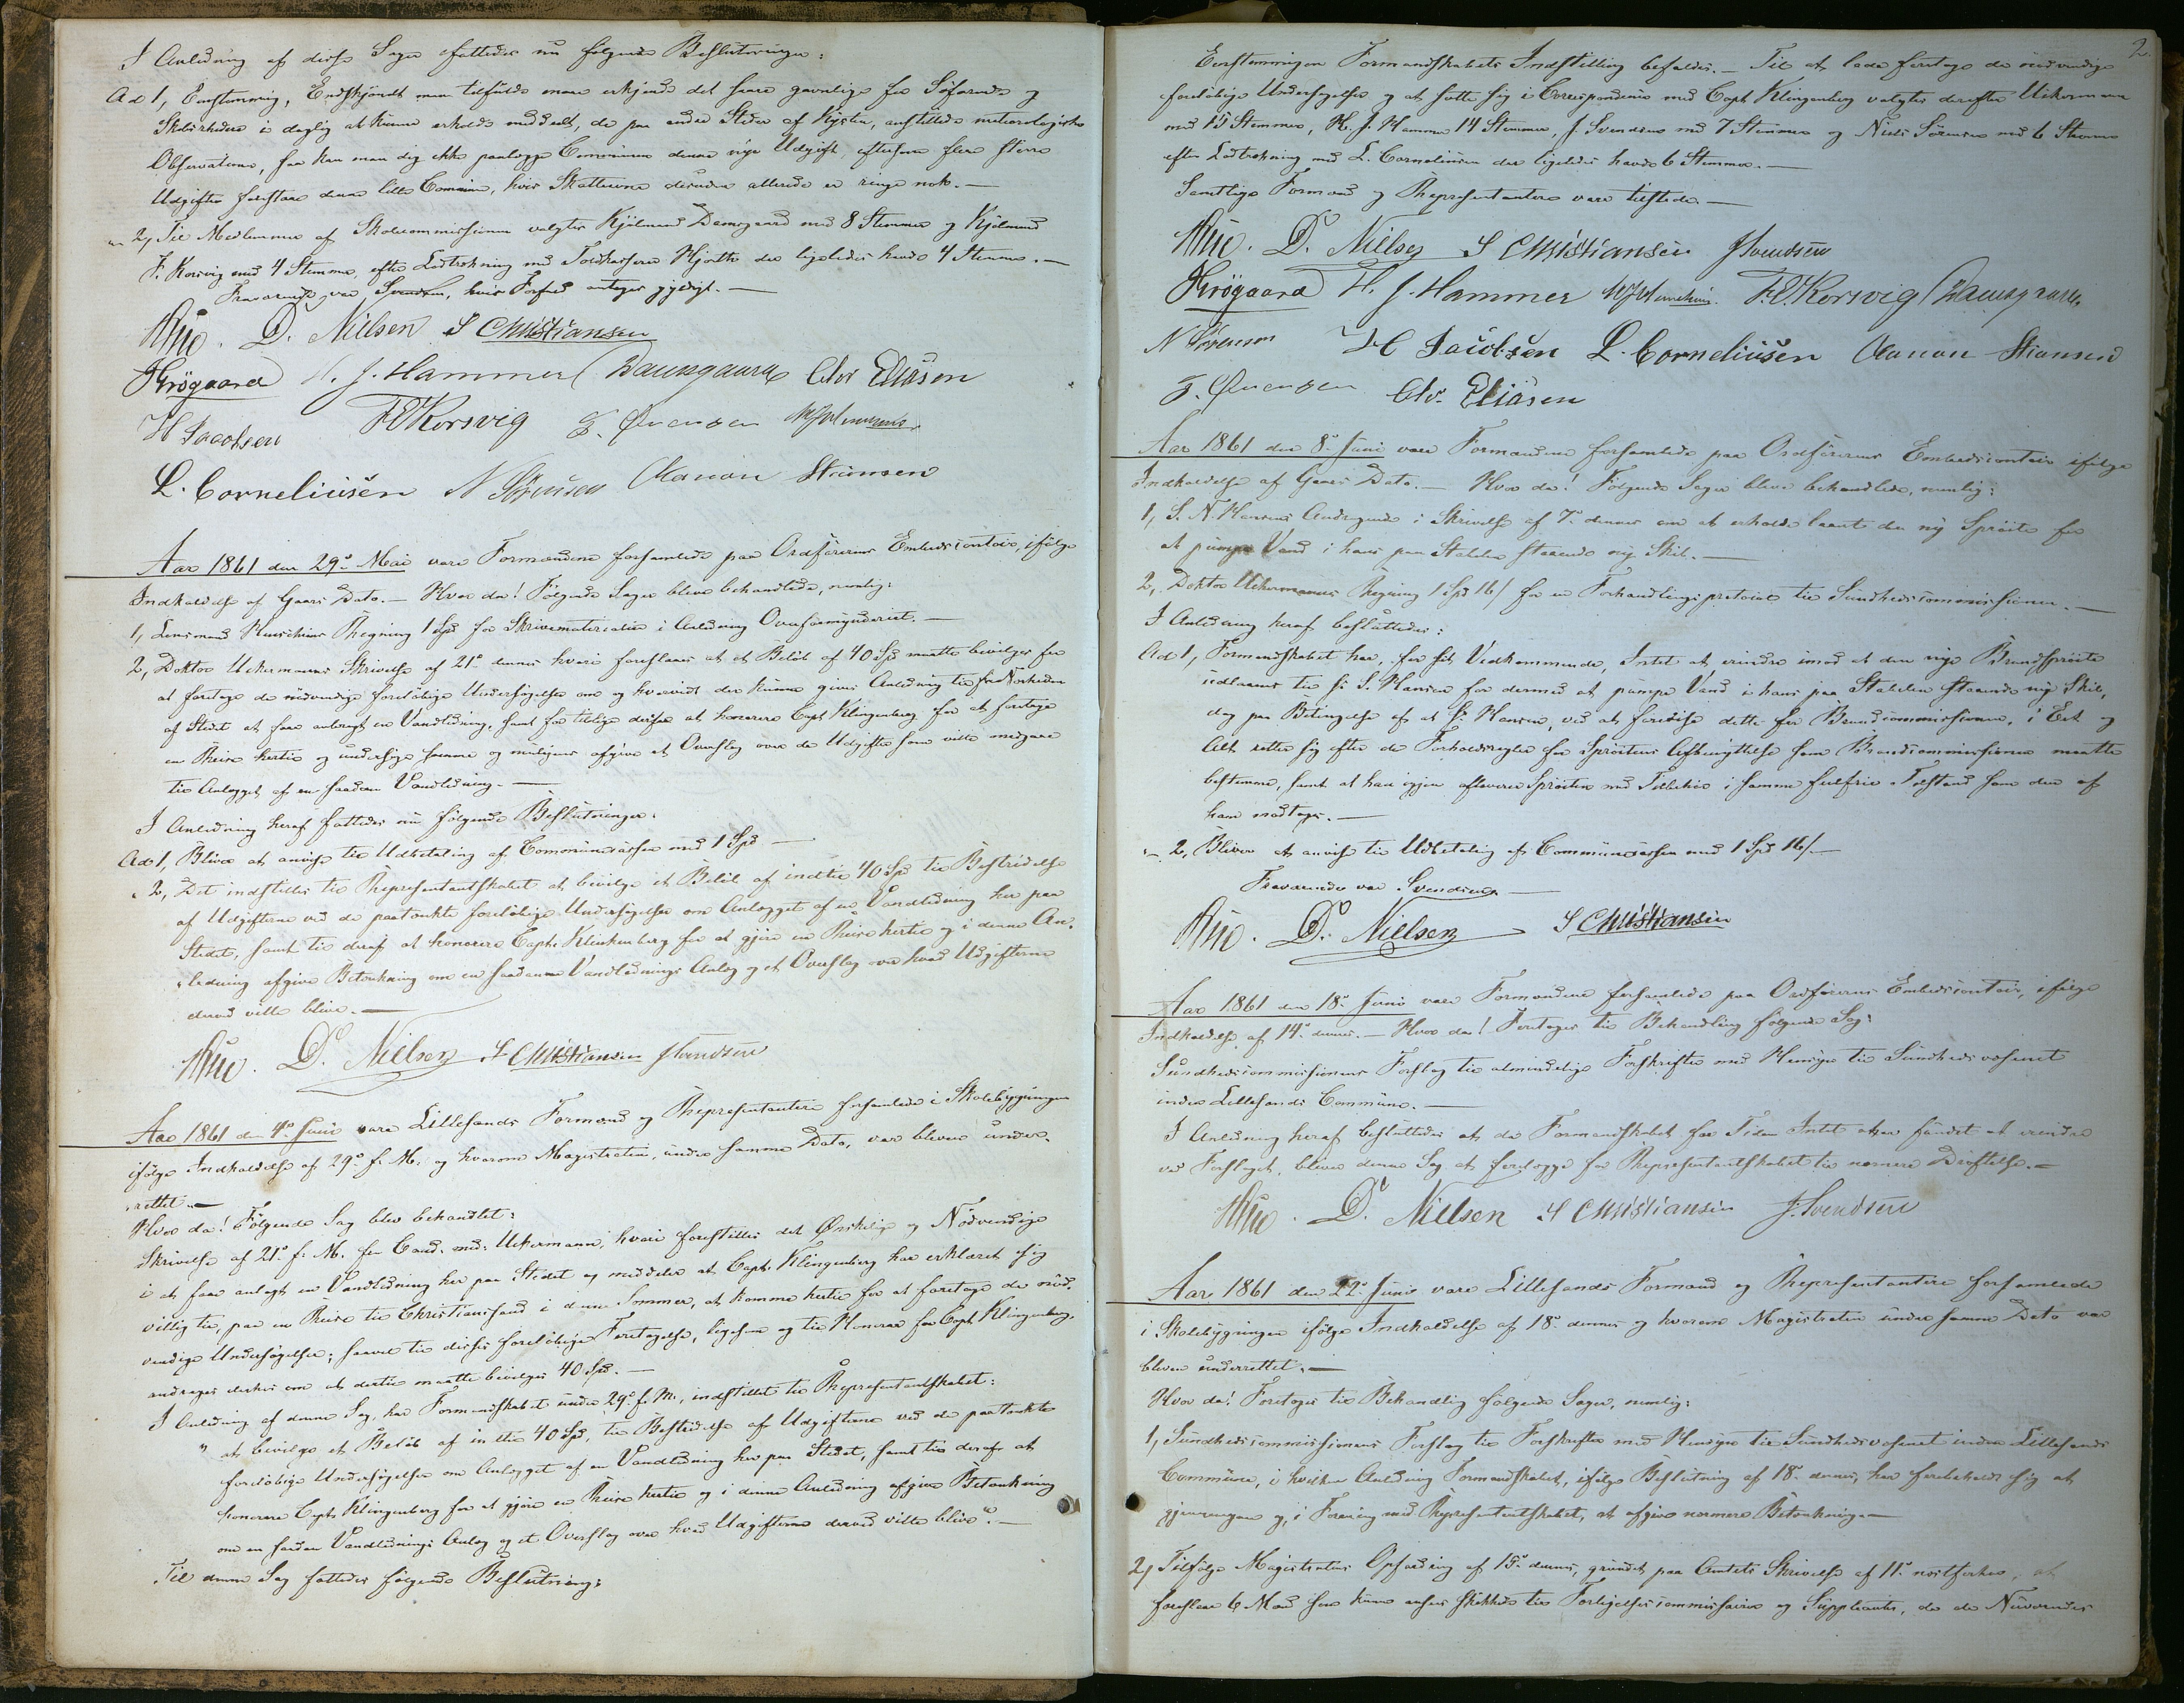 I Anledning af disse Sager fattedes nu følgende Beslutninger:
Ad 1, Eenstemmig, Endskjøndt man tilfulde maa erkjende det saare gavnlige for Søfarende og
Skibsrhedere i daglig at kunne erholde meddelt, de paa andre Steder af Kysten, anstillede meteorologiske
Observationer, saa kan man dog ikke paalægge Communen denne nye Udgift, eftersom flere større
Udgifter forestaae denne lille Commune, hvis Skatteevne desuden allerede er ringe nok.-
" 2, Til Medlemmer af Skolecommissionen valgtes Kjøbmand Daugaard med 8 Stemmer og Kjøbmand
F. Korsvig med 4 Stemmer, efter Lodtrækning med Toldkasserer Hjorth der ligeledes havde 4 Stemmer.-
Fraværende var Svendsen, hvis Forfald antages gyldigt.-
D. Nielsen S Christiansen
Krøgaard H. J. Hammer Daugaard Chr Eliasen
H Jacobsen F Korsvig
L. Corneliusen N Sørensen Stiansen
Aar 1861 den 29de Mai vare Formændene forsamlede paa Ordførerens Embedscontoir, ifølge
Indkaldelse af Gaars Dato.- Hvor da! Følgende Sager bleve behandlede, nemlig:
1, Lensmand Regning 1 Spd for Skrivematerialier i Anledning Overformynderiet.-
2, Doktor Uckermanns Skrivelse af 21de dennes hvori foreslaaes at et Beløb af 40 Spd maatte bevilges for
at foretage de nødvendige foreløbige Undersøgelser om og hvorvidt der kunne gives Anledning til fra
af Stedet at faae anbragt en Vandledning, samt for tillige derfra at honorere Capt. Klingenberg for at foretage
en Reise hertil og undersøge samme og muligens afgive et Overslag over de Udgifter som ville medgaae
til Anlægget af en saadan Vandledning.-
I Anledning heraf fattedes nu følgende Beslutninger:
Ad 1, Bliver at anvise til Udbetaling af Communecassen med 1 Spd -
" 2, Det indstilles til Repræsentantskabet at bevilge et Beløb af indtil 40 Spd til Bestridelse
af Udgifterne ved de paatænkte foreløbige Undersøgelser om Anlægget af en Vandledning her paa
Stedet, samt til deraf at honorere Capt. Klinkenberg for at gjøre en Reise hertil og i denne An-
ledning afgive Betænkning om en saadan Vandlednings Anlæg og et Overslag over hvad Udgifterne
derved ville blive.-
D. Nielsen S Christiansen J Svendsen
Aar 1861 den 4de Juni vare Lillesands Formænd og Repræsentantere forsamlede i Skolebygningen
ifølge Indkaldelse af 29de f. M. og hvorom Magistraten, under samme Dato, var bleven under-
rettet.-
Hvor da! Følgende Sag blev behandlet:
Skrivelse af 21de f. M. fra Cand. med. Uckermann, hvori forestilles det Ønskelige og Nødvendige
i at faae anlagt en Vandledning her paa Stedet og meddeler at Capt. Klingenberg har erklæret sig
villig til, paa en Reise til Christianssand i denne Sommer, at komme hertil for at foretage de nød-
vendige Undersøgelser; saavel til disses foreløbige Foretagelse, ligesom og til Honorar for Capt Klingenberg,
andrages derhos om at dertil maatte bevilges 40 Spd.-
I Anledning af denne Sag, har Formandskabet under 29de f. M., indstillet til Repræsentantskabet:
" at bevilge et Beløb af indtil 40 Spd, til Bestridelse af Udgifterne ved de paatænkte
foreløbige Undersøgelser om Anlægget af en Vandledning her paa Stedet, samt til deraf at
honorere Capt. Klingenberg for at gjøre en Reise hertil og i denne Anledning afgive Betænkning
om en saadan Vandlednings Anlæg og et Overslag over hvad Udgifterne derved ville blive".-
Til denne Sag fattedes følgende Beslutning:
2.
Eenstemmigen Formandskabets Indstilling bifaldes.- Til at lade foretage de nødvendige
foreløbige Undersøgelser og at sætte sig i Correspondence med Capt. Klingenberg valgtes derefter Uckermann
med 15 Stemmer, H. J. Hammer 14 Stemmer, J Svendsen med 7 Stemmer og Niels Sørensen med 6 Stemmer
efter Lodtrækning med L. Corneliusen der ligeledes havde 6 Stemmer.-
Samtlige Formænd og Repræsentantere vare tilstede.-
D. Nielsen S Christiansen J Svendsen
Krøgaard H. J. Hammer F. Korsvig Daugaard
N Sørensen H Jacobsen L. Corneliusen Stiansen
Chr. Eliasen
Aar 1861 den 8de Juni vare Formændene forsamlede paa Ordførerens Embedscontoir ifølge
Indkaldelse af Gaars Dato.- Hvor da! Følgende Sager bleve behandlede, nemlig:
1, S. N. Hansens Andragende i Skrivelse af 7de dennes om at erholde laant den ny Sprøite for
at pumpe Vand i hans paa Stabelen staaende nye Skib.-
2, Doktor Uckermanns Regning 1 Spd 16/ for en Forhandlingsprotocol til Sundhedscommissionen.-
I Anledning heraf besluttedes:
Ad 1, Formandskabet har, for sit Vedkommende, Intet at erindre imod at den nye Brandsprøite
udlaanes til Hr S. Hansen for dermed at pumpe Vand i hans paa Stabelen staaende nye Skib,
dog paa Betingelse af at Hr. Hansen, ved at forevise dette for Brandcommissionen, i Eet og
Alt retter sig efter de Forholdsregler for Sprøitens Afbenyttelse som Brandcommissionen maatte
bestemme, samt at han igjen afleverer Sprøiten med Tilbehør i samme feilfrie Tilstand som den af
ham modtages.-
" 2, Bliver at anvise til Udbetaling af Communecassen med 1 Spd 16/.-
Fraværende var Svendsen.-
D. Nielsen S Christiansen
Aar 1861 den 18de Juni vare Formændene forsamlede paa Ordførerens Embedscontoir, ifølge
Indkaldelse af 14de dennes.- Hvor da! Foretoges til Behandling følgende Sag:
Sundhedscommissionens Forslag til almindelige Forskrifter med Hensyn til Sundhedsvæsenet
inden Lillesands Commune.-
I Anledning heraf besluttedes at da Formandskabet for Tiden Intet har fundet at erindre
ved Forslaget, bliver denne Sag at forelægge for Repræsentantskabet til nærmere Drøftelse.-
D. Nielsen S Christiansen J. Svendsen
Aar 1861 den 22de Juni vare Lillesands Formænd og Repræsentantere forsamlede
i Skolebygningen ifølge Indkaldelse af 18de dennes og hvorom Magistraten under samme Dato var
bleven underrettet.-
Hvor da! Foretoges til Behandling følgende Sager, nemlig:
1, Sundhedscommissionens Forslag til Forskrifter med Hensyn til Sundhedsvæsenet inden Lillesands
Commune, i hvilken Anledning Formandskabet, ifølge Beslutning af 18de dennes, har forbeholdt sig at
gjennemgaae og, i Forening med Repræsentantskabet, at afgive nærmere Betænkning.-
2, Tilfølge Magistratens Opfordring af 15de dennes, grundet paa Amtets Skrivelse af 11te næstforhen, at
foreslaae 6 Mænd som kunne ansees skikkede til Forligelsescommissairer og Suppleanter, da de Nuværendes